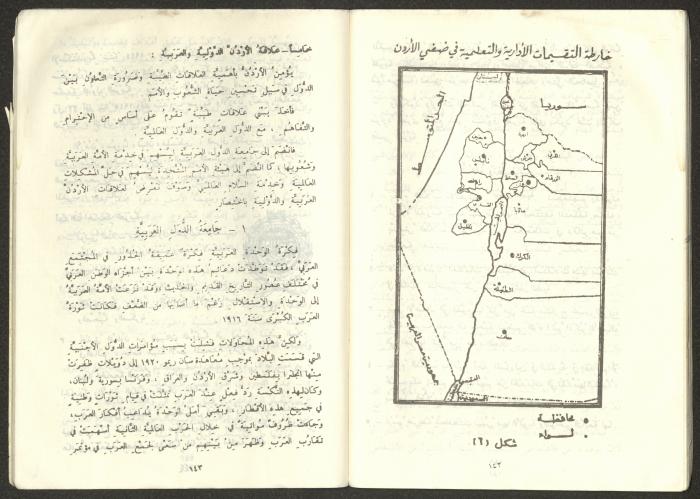 خارطة التقسيمات الأدارية والتعليمية في ضفتي الأردن
سوريا
البحر المتوسط
اربد
جنين
نابلس
السلط
المفرق
الزرقاء
القدس
مادبا
الخليل
الكرك
الطفيلة
معان
جمهورية مصر العربية
العقبة
السعودية
محافظة
لواء
شكل (٦)
١٤٢
خامساً - علاقة الأردن الدولية والعربية :
يؤمن الأردن بأهمية العلاقات الطيبة وضرورة التعاون بين
الدول في سبيل تحسين حياة الشعوب والأمم
فأخذ يبني علاقات طيبة تقوم على أساس من الإحترام
والتفاهم ، مع الدول العربية والدول العالمية
فانضم إلى جامعة الدول العربية ليسهم في خدمة الأمة العربية
وشعوبها ، كما انضم إلى هيئة الأمم المتحدة ليسهم في حل المشكلات
العالمية وخدمة السلام العالمي وسوف نعرض لعلاقات الأردن
العربية والدولية باختصار
١ - جامعة الدول العربية
فكرة الوحدة العربية فكرة عميقة الجذور في المجتمع
العربي ، فقد توطدت دعائم هذه الوحدة بين أجزاء الوطن العربي
في مختلف عصور التاريخ القديم والحديث ، وقد نزعت الأمة العربية
إلى الوحدة والاستقلال رغم ما أصابها من الضعف فكانت ثورة
العرب الكبرى سنة ١٩١٦
ولكن هذه المحاولات فشلت بسبب مؤامرات الدول الأجنبية
التي قسمت البلاد بموجب معاهدة سان ريمو ١٩٢٠ إلى دويلات ظفرت
منها انجلترا بفلسطين وشرق الأردن والعراق ، وفرنسا بسورية ولبنان،
وكان لهذه النكسة رد فعل عند العرب تمثلت في قيام ثورات وطنية
في جميع هذه الأقطار ، وبقي أمل الوحدة يداعب أفكار العرب،
وجاءت ظروف مواتية في خلال الحرب العالمية الثانية أسهمت في
تقارب العرب وظهر من بينهم من سعى لجمع العرب في مؤتمر
١٤٣